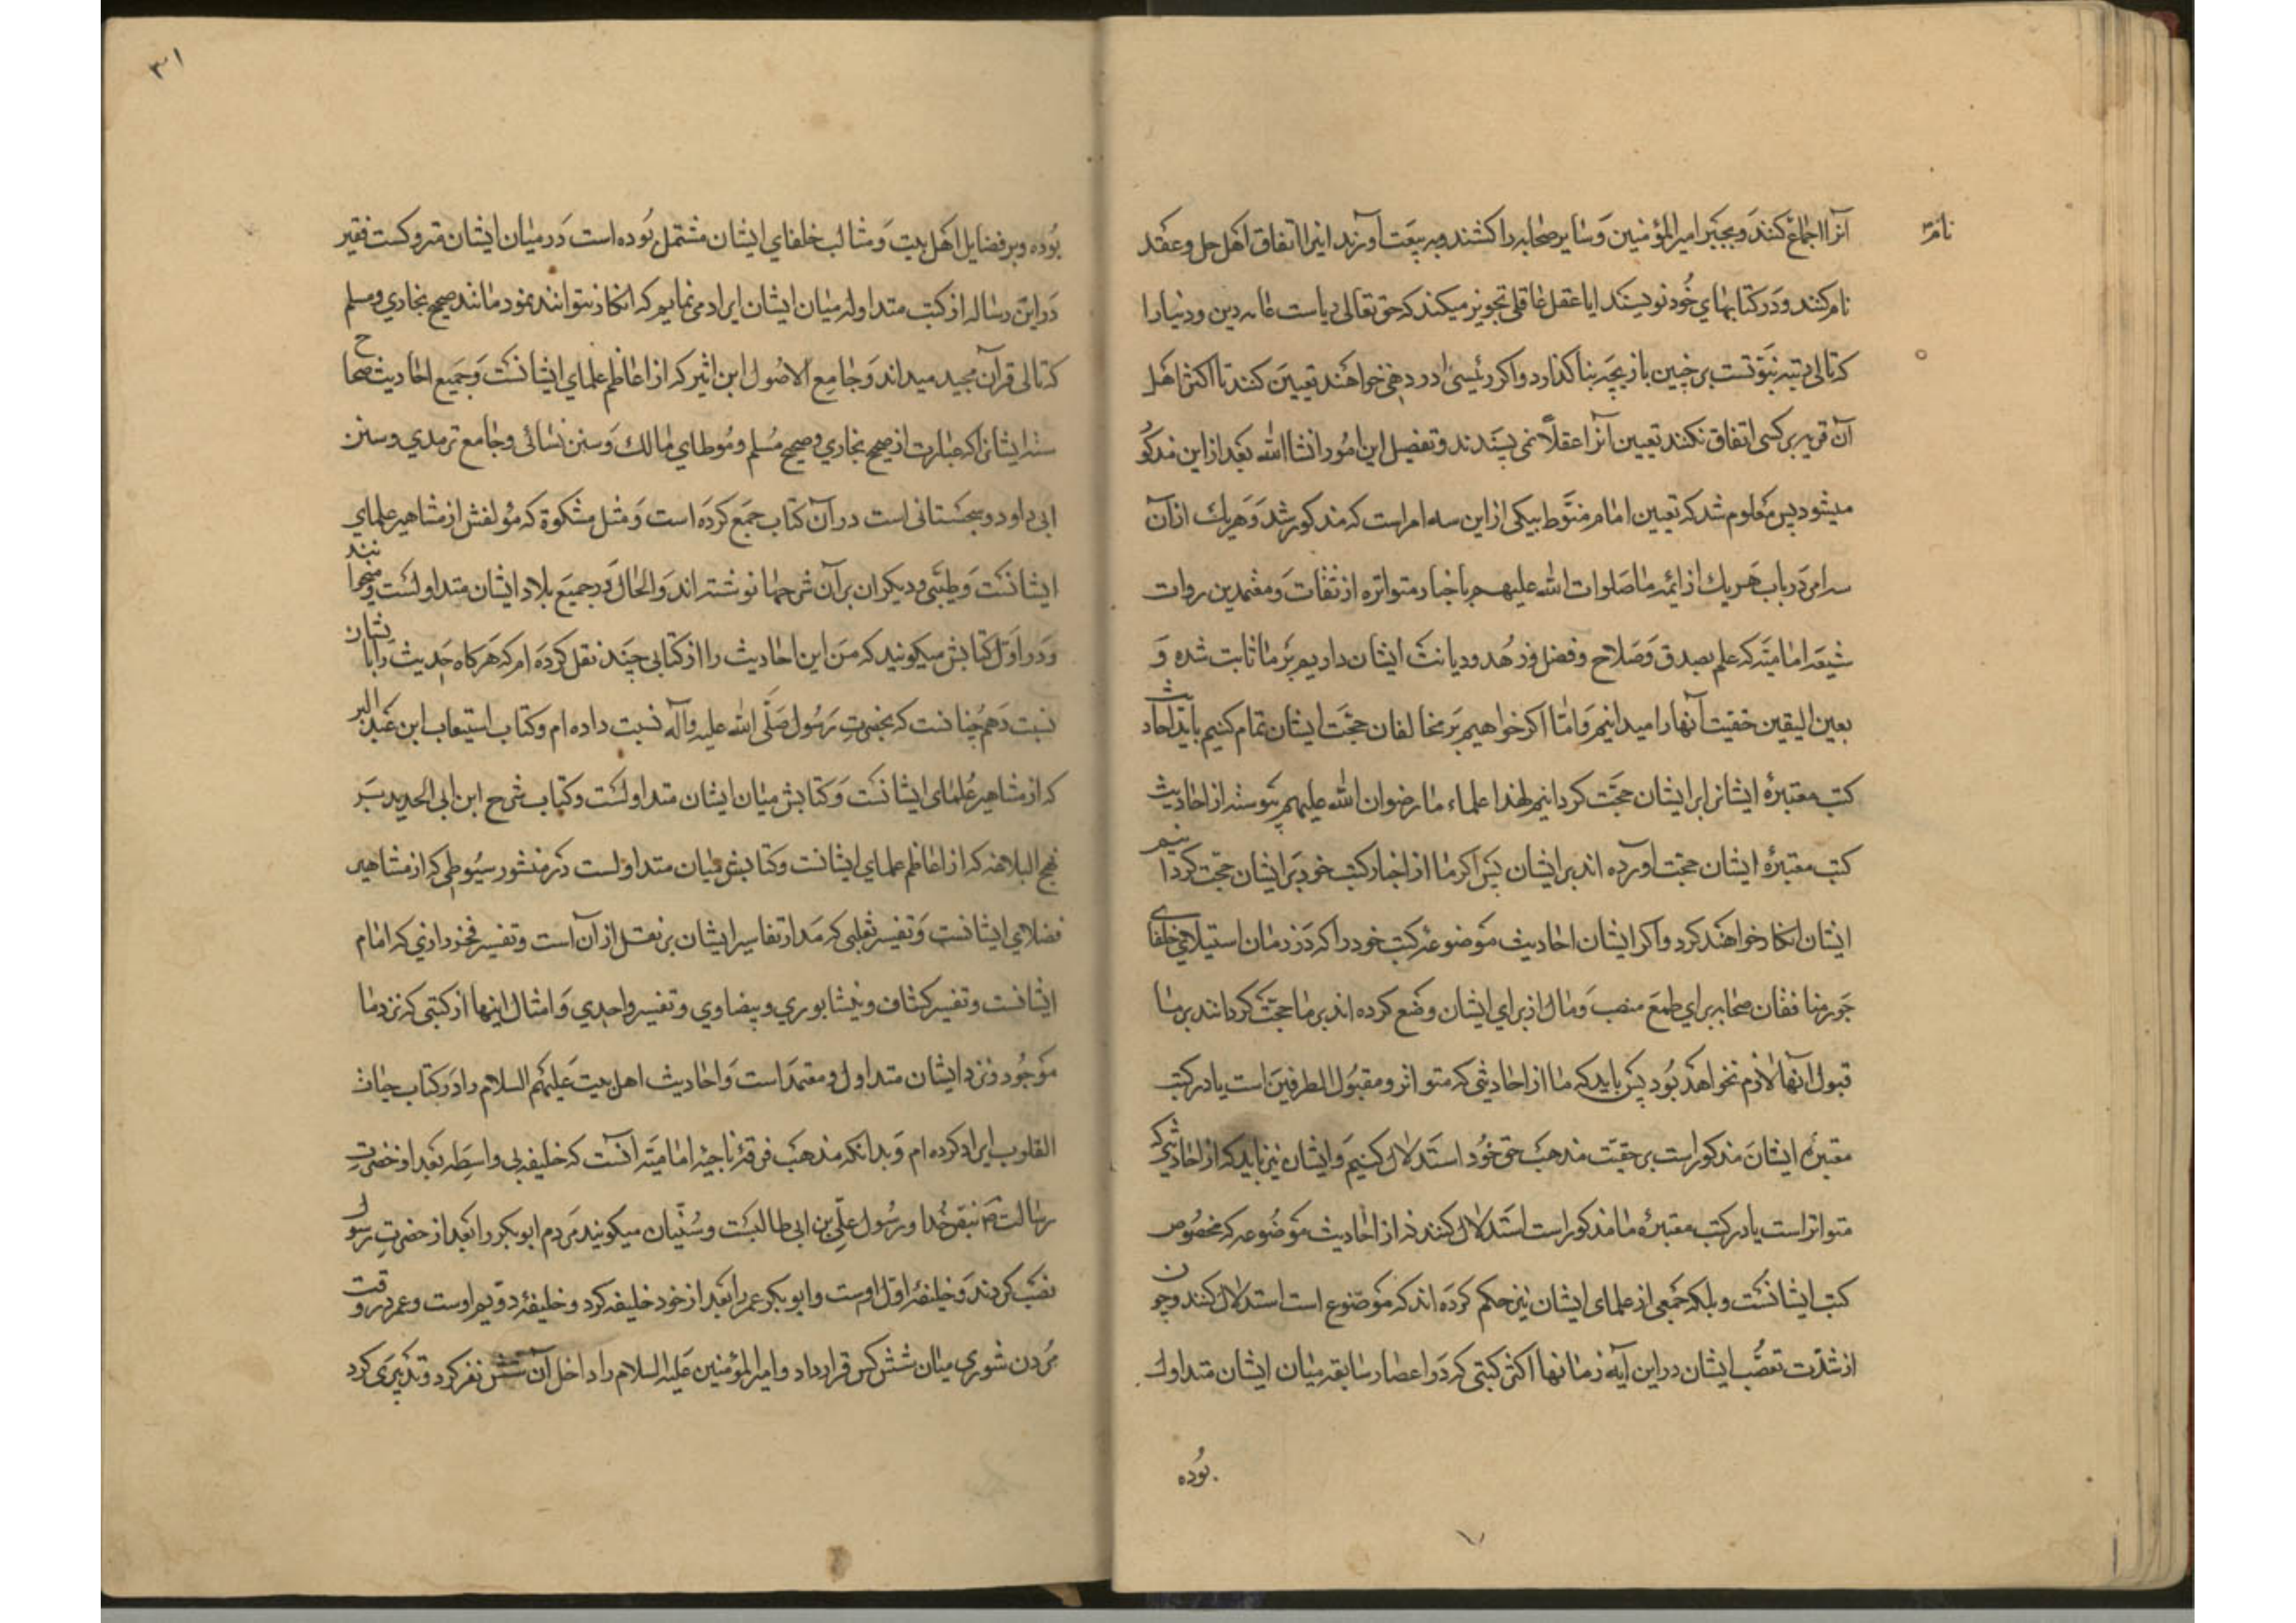 آنرا اجماع کنند و بجبر امیرالمؤمنین و سایر صحابه را کشند و به بیعت آورند اینرا اتفاق اهل حل و عقد
نام
نام کنند و در کتابهای خود نویسند ایا عقل عاقلی تجویز میکند که حق تعالی ریاست عامه دین و دنیا را
که تالی رتبه نبوتست بر چنین بازیچه بنا گذارد و اکر رئیسی را در دهی خواهند تعیین کنند تا اکثر اهل
آن قریه بر کسی اتفاق نکنند تعیین آنرا عقلا نمی پسندند و تفصیل این امور انشا الله بعد از این مذکو
میشود پس معلوم شد که تعیین امام منوط بیکی از این سه امر است که مذکور شد و هر یک از آن
سه امر در باب هر یک از ائمه ما صلوات الله علیهم باخبار متواتره از ثقات و معتمدین روات
شیعه امامیه که علم بصدق و صلاح و فضل و زهد و دیانت ایشان داریم بر ما ثابت شده و
بعین الیقین حقیت آنها را میدانیم و اما اکر خواهیم بر مخالفان حجت ایشان تمام کنیم باید احادیث
کتب معتبرهٔ ایشانرا بر ایشان حجت کردانیم لهذا علماء ما رضوان الله علیهم پیوسته از احادیث
کتب معتبرهٔ ایشان حجت اورده اند بر ایشان پس اکر ما از اخبار کتب خود بر ایشان حجت کردانیم
ایشان انکار خواهند کرد و اکر ایشان احادیث موضوعه کتب خود را که در زمان استیلای خلفای
جور منافقان صحابه برای طمع منصب و مال از برای ایشان وضع کرده اند بر ما حجت کردانند بر ما
قبول آنها لازم نخواهد بود پس باید که ما از احادیثی که متواتر و مقبول الطرفین است یا در کتب
معتبرهٔ ایشان مذکور است بر حقیت مذهب حق خود استدلال کنیم و ایشان نیز باید که از احادیثی که
متواتر است یا در کتب معتبرهٔ ما مذکور است استدلال کنند نه از احادیث موضوعه که مخصوص
کتب ایشانست و بلکه جمعی از علمای ایشان نیز حکم کرده اند که موضوع است استدلال کنند و چون
از شدت تعصب ایشان در این آیه زمانها اکثر کتبی که در اعصار سابقه میان ایشان متداول
بوده
۳۱
بوده و بر فضایل اهل بیت و مثالب خلفای ایشان مشتمل بوده است در میان ایشان متروکست فقیر
در این رساله از کتب متداوله میان ایشان ایراد می نمایم که انکار نتوانند نمود مانند صحیح بخاری و مسلم
که تالی قرآن مجید میدانند و جامع الاصول ابن اثیر که از اعاظم علمای ایشانست و جمیع احادیث صحاح
سته ایشانرا که عبارت از صحیح بخاری و صحیح مسلم و موطای مالک و سنن نسائی و جامع ترمدی و سنن
ابی داود و سجستانی است در آن کتاب جمع کرده است و مثل مشکوة که مولفش از مشاهیر علمای
ایشانست و طیبی و دیکران بر آن شرحها نوشته اند و الحال در جمیع بلاد ایشان متداولست و میخوانند
و در اول کتابش میکوید که من این احادیث را از کتابی چند نقل کرده ام که هرکاه حدیث را بایشان
نسبت دهم چنانست که بحضرت رسول صلی الله علیه وآله نسبت داده ام و کتاب استیعاب ابن عبد البر
که از مشاهیر علمای ایشانست و کتابش میان ایشان متداولست و کتاب شرح ابن ابی الحدید بر
نهج البلاغه که از اعاظم علمای ایشانست و کتابش میان متداولست درمنثور سیوطی که از مشاهیر
فضلای ایشانست و تفسیر ثعلبی که مدار تفاسیر ایشان بر نقل از آن است و تفسیر فخر رازی که امام
ایشانست و تفسیر کشاف و نیشابوری و بیضاوی و تفسیر واحدی و امثال اینها از کتبی که نزد ما
موجود و نزد ایشان متداول و معتمد است و احادیث اهل بیت علیهم السلام را در کتاب حیات
القلوب ایراد کرده ام و بدانکه مذهب فرقهٔ ناجیهٔ امامیه آنست که خلیفه بی واسطه بعد از حضرت
رسالت ص بنص خدا و رسول علی بن ابی طالبست و سنیان میکویند مردم ابوبکر را بعد از حضرت رسول
نصب کردند و خلیفهٔ اول اوست و ابوبکر عمر را بعد از خود خلیفه کرد و خلیفهٔ دویم اوست و عمر در وقت
مردن شوری میان شش کس قرار داد و امیرالمؤمنین علیه السلام را داخل آن شش نفر کرد و تدبیری کرد